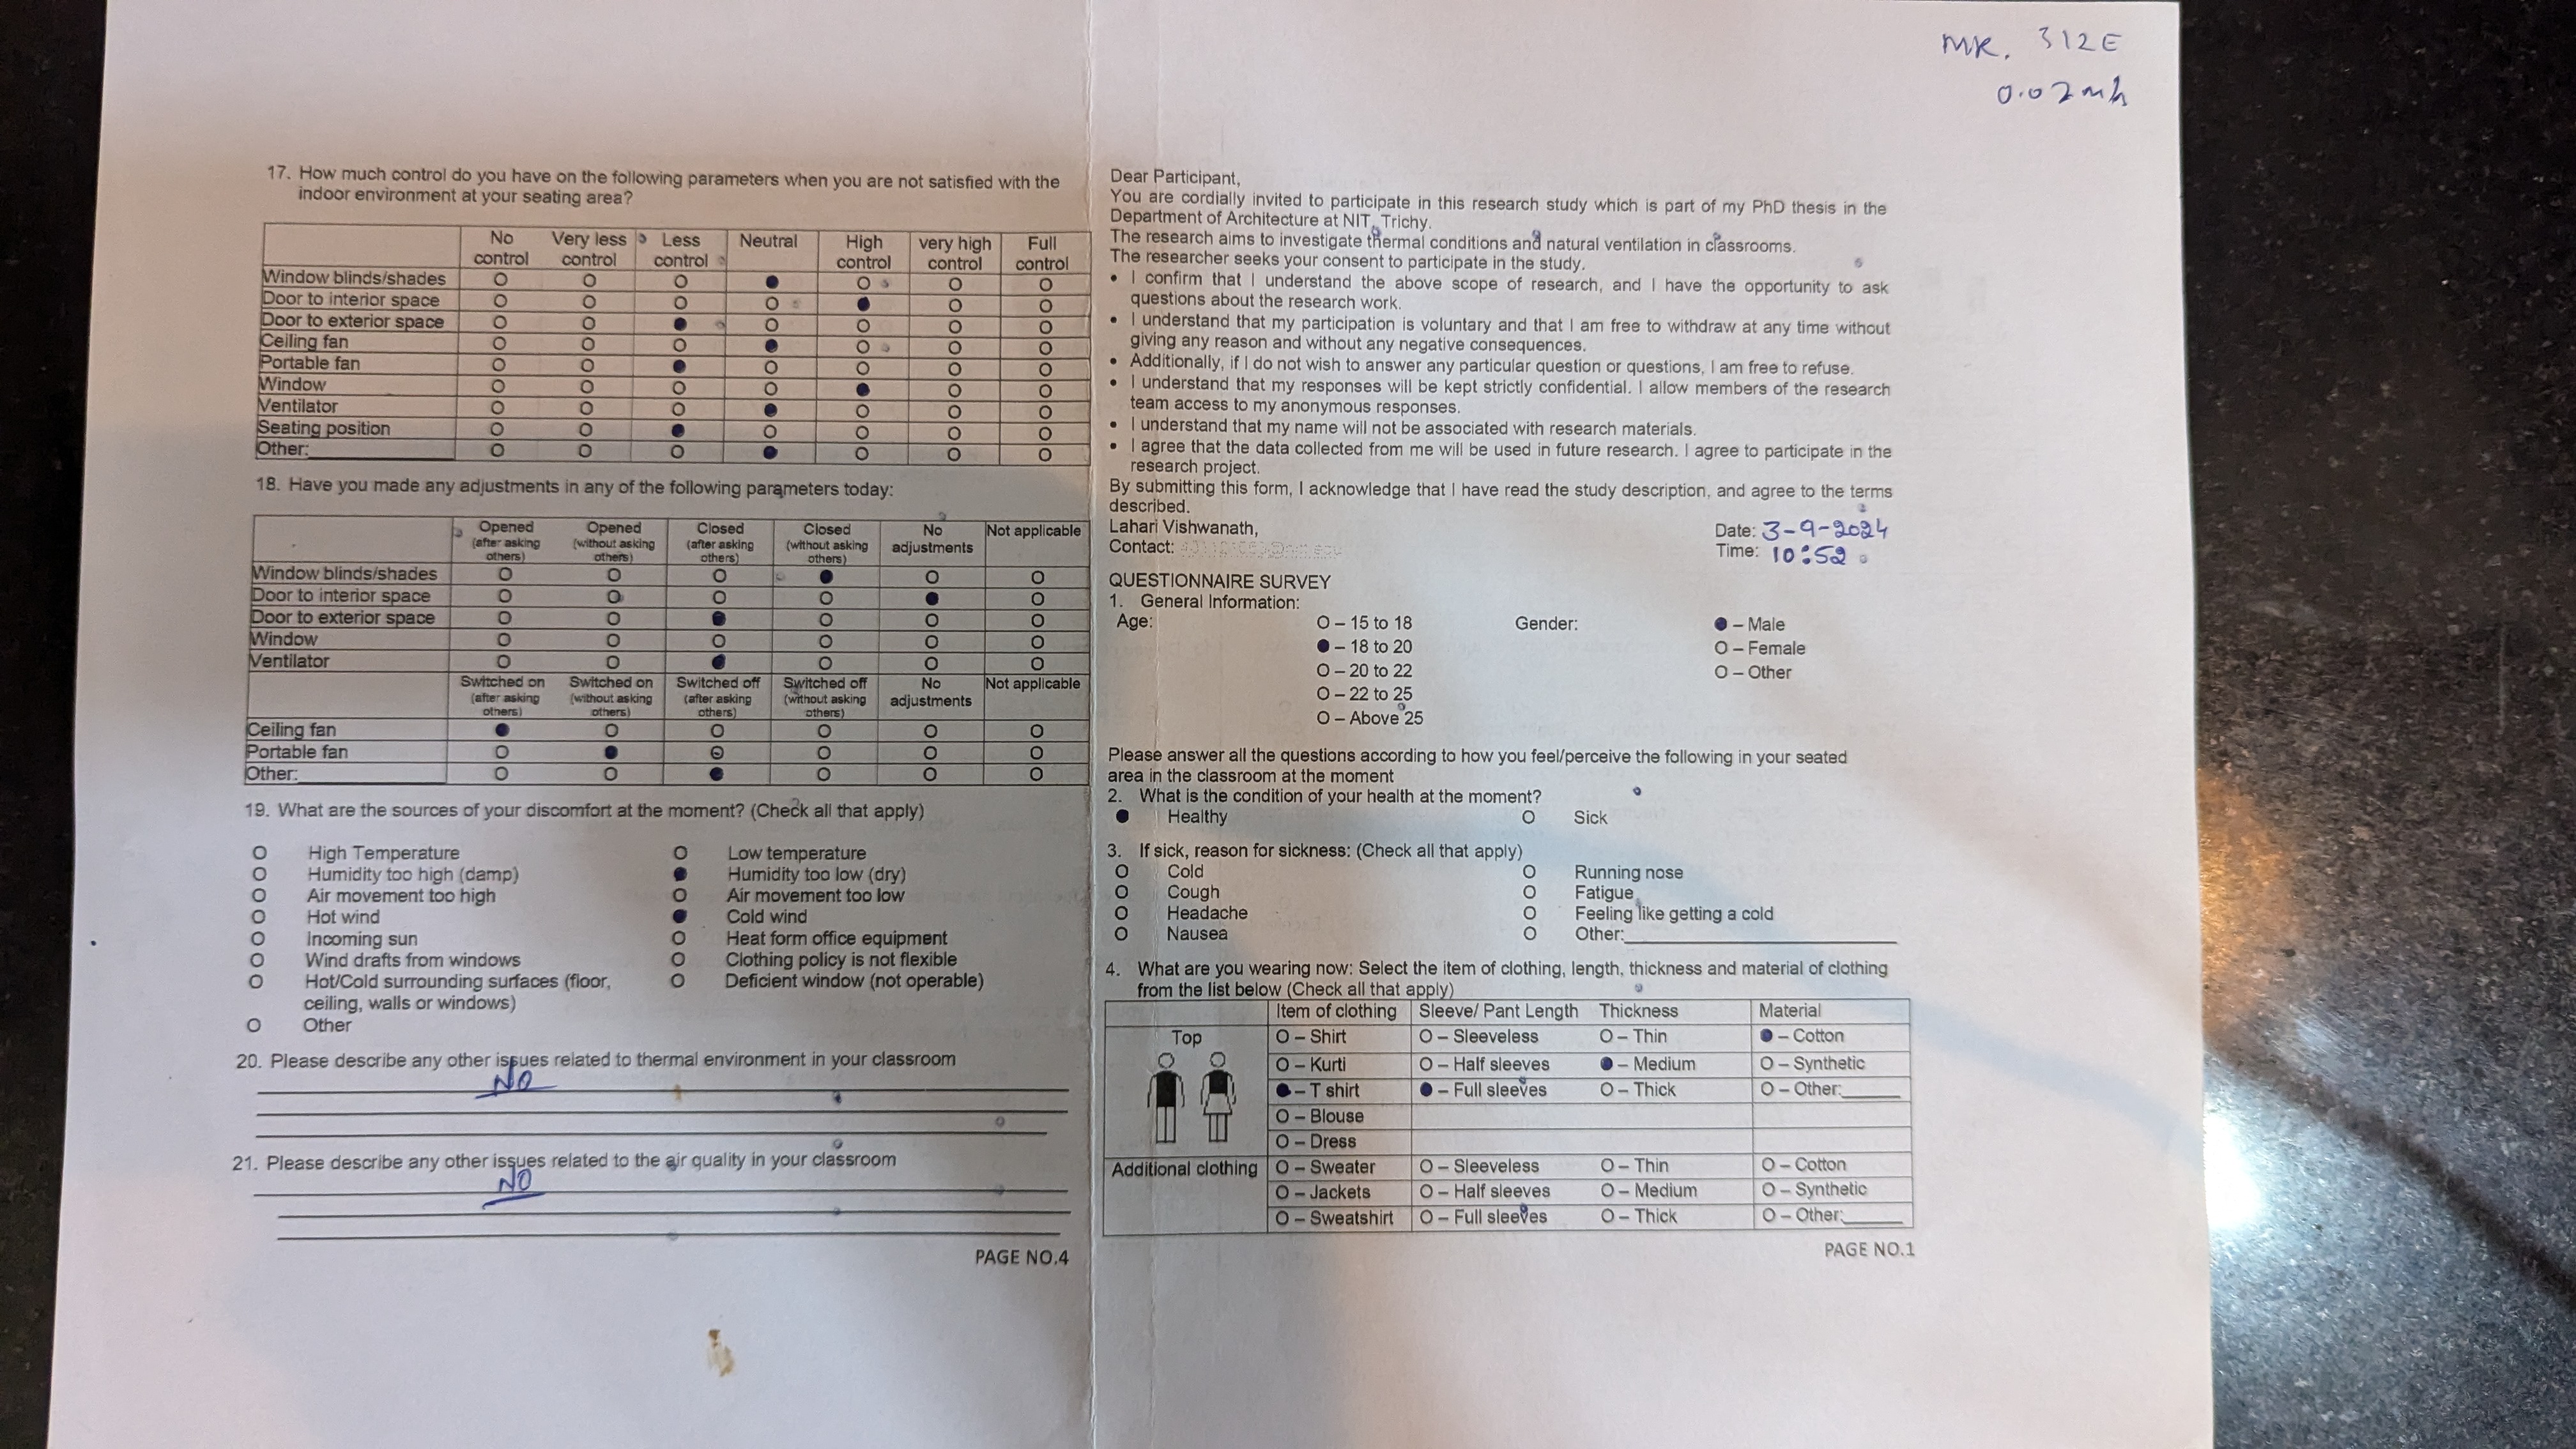 MR. 312E
17. How much control do you have on the following parameters when you are not satisfied with the
indoor environment at your seating area?
No control Very less control Less control Neutral High control very high control Full control
Window blinds/shades O O O ● O O O
Door to interior space O O O O ● O O
Door to exterior space O O ● O O O O
Ceiling fan O O O ● O O O
Portable fan O O ● O O O O
Window O O O O ● O O
Ventilator O O O ● O O O
Seating position O O ● O O O O
Other:________ O O O ● O O O
18. Have you made any adjustments in any of the following parameters today:
Opened (after asking others) Opened (without asking others) Closed (after asking others) Closed (without asking others) No adjustments Not applicable
Window blinds/shades O O O ● O O
Door to interior space O O O O ● O
Door to exterior space O O ● O O O
Window O O O O O O
Ventilator O O ● O O O
Switched on (after asking others) Switched on (without asking others) Switched off (after asking others) Switched off (without asking others) No adjustments Not applicable
Ceiling fan ● O O O O O
Portable fan O ● O O O O
Other:________ O O ● O O O
19. What are the sources of your discomfort at the moment? (Check all that apply)
O High Temperature O Low temperature
O Humidity too high (damp) ● Humidity too low (dry)
O Air movement too high O Air movement too low
O Hot wind ● Cold wind
O Incoming sun O Heat form office equipment
O Wind drafts from windows O Clothing policy is not flexible
O Hot/Cold surrounding surfaces (floor, O Deficient window (not operable)
ceiling, walls or windows)
O Other
20. Please describe any other issues related to thermal environment in your classroom
NO
21. Please describe any other issues related to the air quality in your classroom
NO
PAGE NO.4
Dear Participant,
You are cordially invited to participate in this research study which is part of my PhD thesis in the
Department of Architecture at NIT, Trichy.
The research aims to investigate thermal conditions and natural ventilation in classrooms.
The researcher seeks your consent to participate in the study.
• I confirm that I understand the above scope of research, and I have the opportunity to ask
questions about the research work.
• I understand that my participation is voluntary and that I am free to withdraw at any time without
giving any reason and without any negative consequences.
• Additionally, if I do not wish to answer any particular question or questions, I am free to refuse.
• I understand that my responses will be kept strictly confidential. I allow members of the research
team access to my anonymous responses.
• I understand that my name will not be associated with research materials.
• I agree that the data collected from me will be used in future research. I agree to participate in the
research project.
By submitting this form, I acknowledge that I have read the study description, and agree to the terms
described.
Lahari Vishwanath,
Contact:
Date: 3-9-2024
Time: 10:52
QUESTIONNAIRE SURVEY
1. General Information:
Age: O – 15 to 18 Gender: ● – Male
● – 18 to 20 O – Female
O – 20 to 22 O – Other
O – 22 to 25
O – Above 25
Please answer all the questions according to how you feel/perceive the following in your seated
area in the classroom at the moment
2. What is the condition of your health at the moment?
● Healthy O Sick
3. If sick, reason for sickness: (Check all that apply)
O Cold O Running nose
O Cough O Fatigue
O Headache O Feeling like getting a cold
O Nausea O Other:________
4. What are you wearing now: Select the item of clothing, length, thickness and material of clothing
from the list below (Check all that apply)
Item of clothing Sleeve/ Pant Length Thickness Material
Top O – Shirt O – Sleeveless O – Thin ● – Cotton
O – Kurti O – Half sleeves ● – Medium O – Synthetic
● – T shirt ● – Full sleeves O – Thick O – Other:______
O – Blouse
O – Dress
Additional clothing O – Sweater O – Sleeveless O – Thin O – Cotton
O – Jackets O – Half sleeves O – Medium O – Synthetic
O – Sweatshirt O – Full sleeves O – Thick O – Other:______
PAGE NO.1